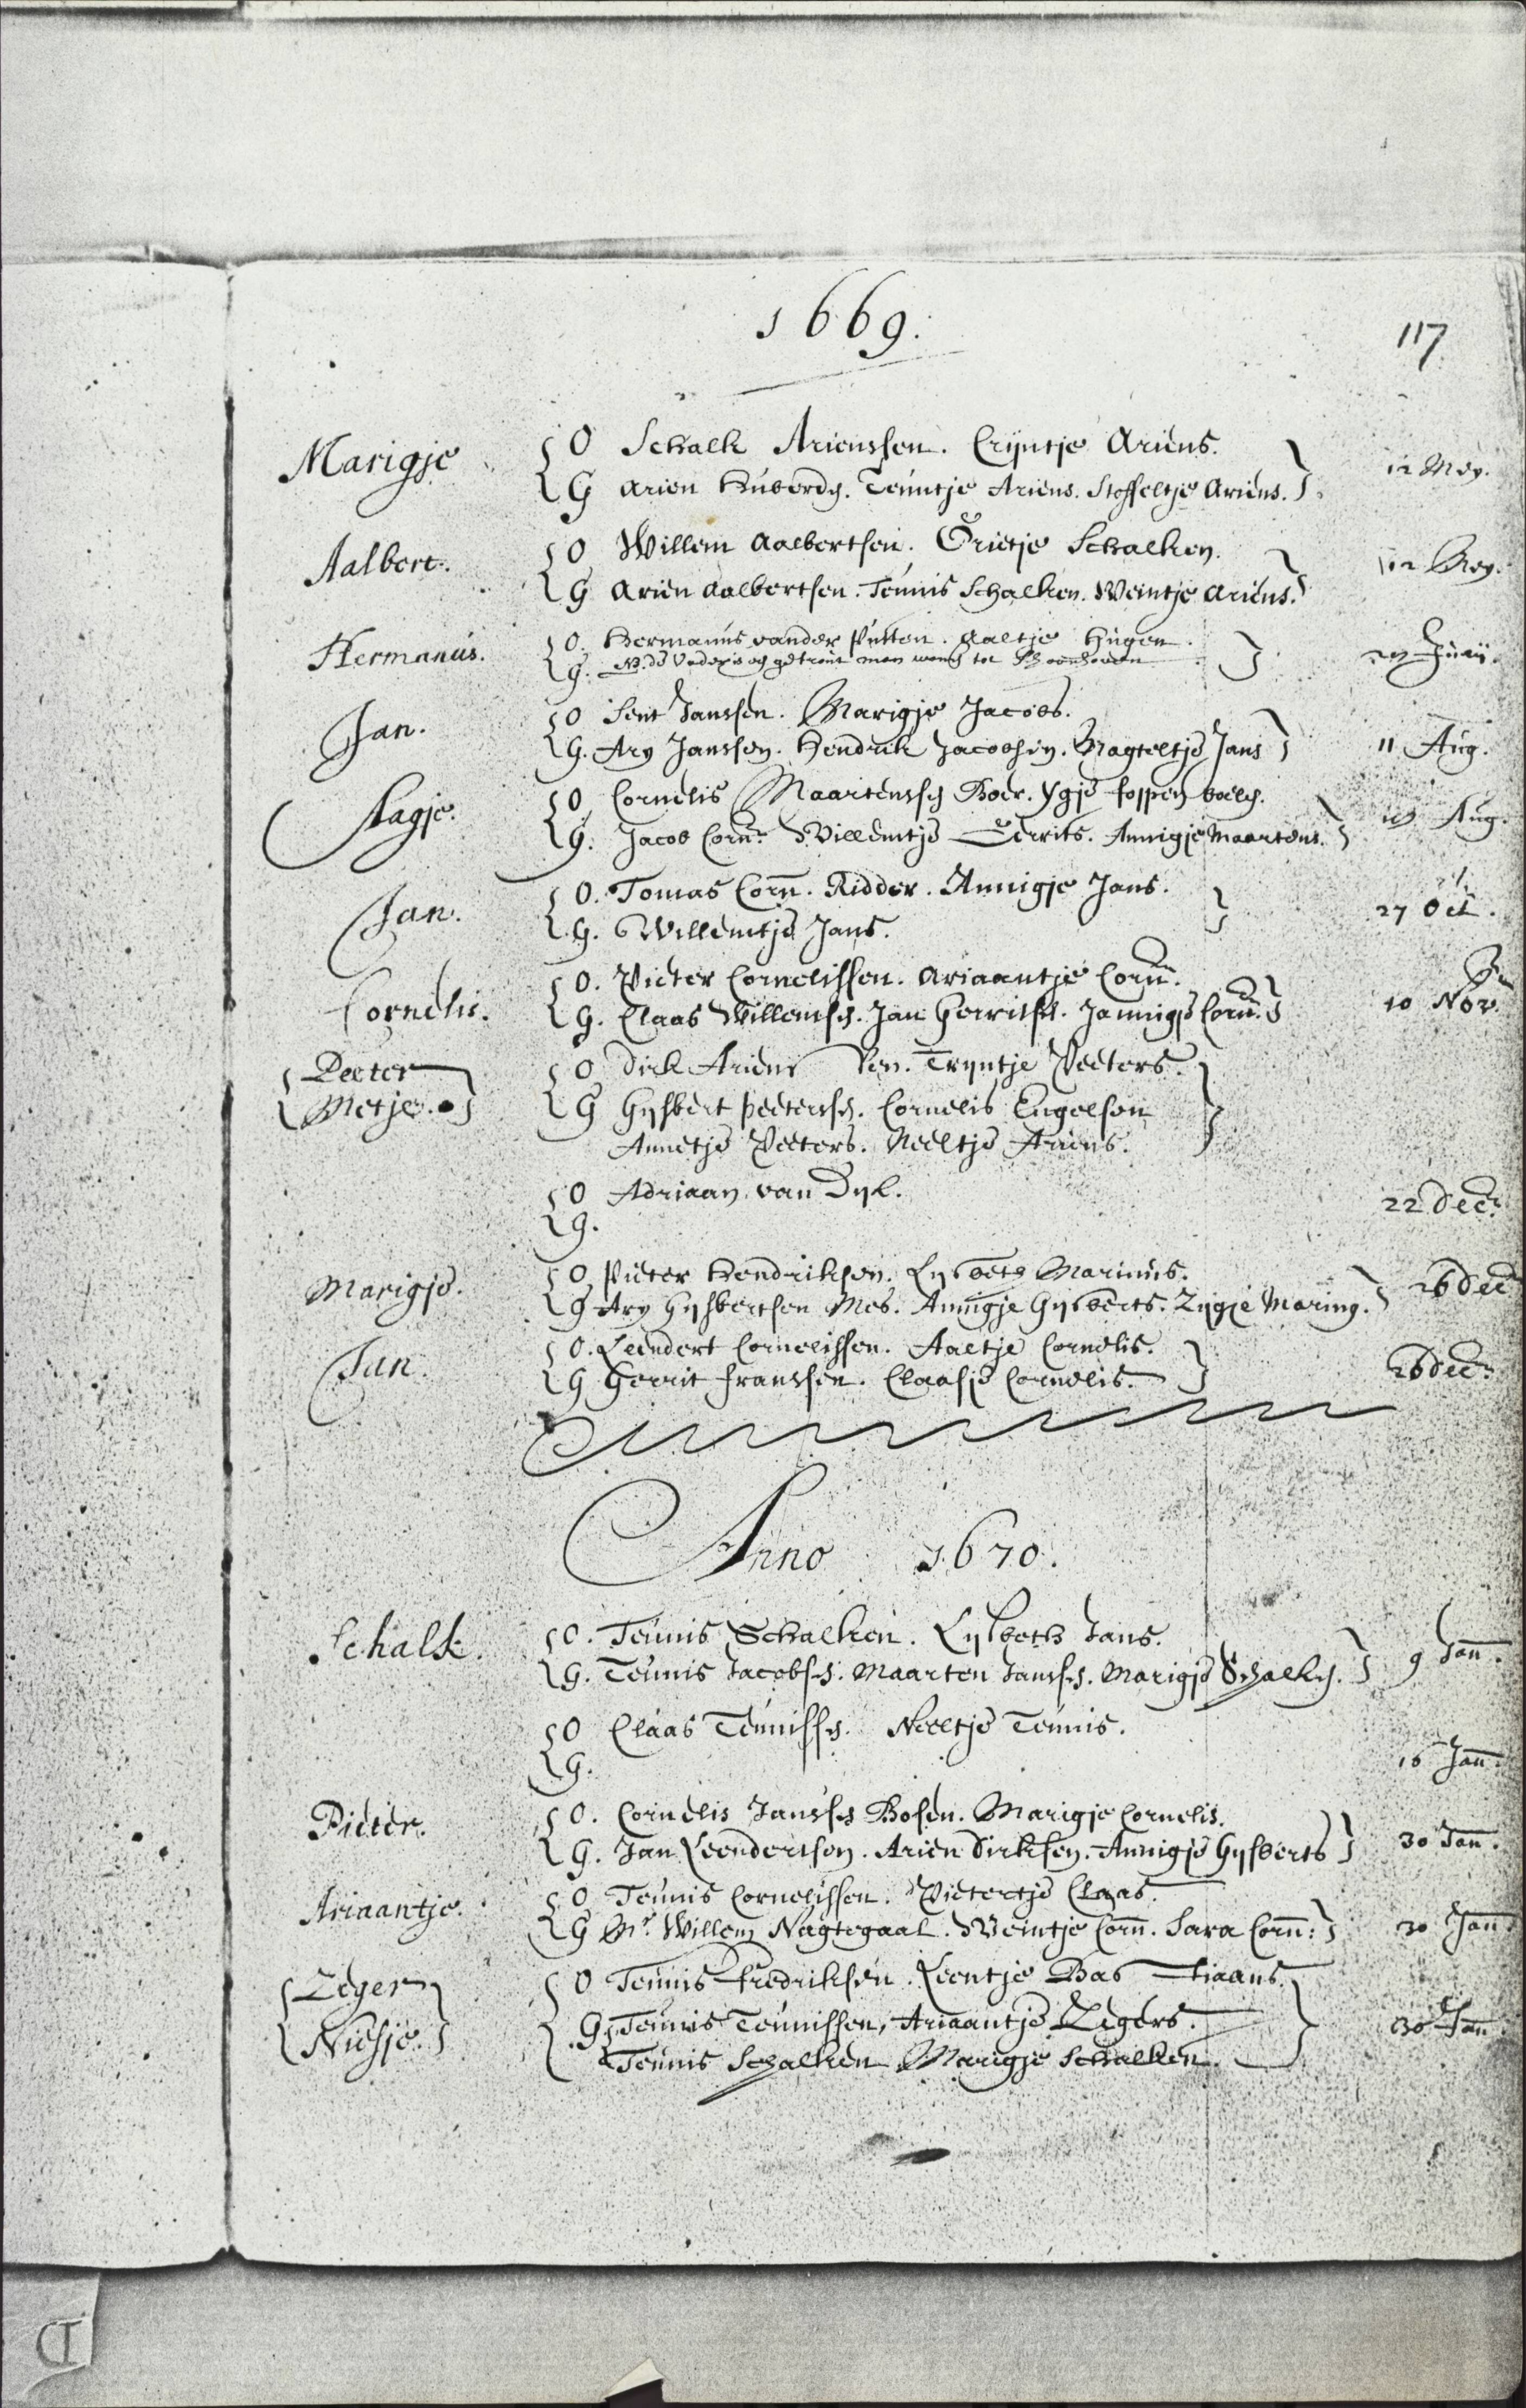 1669.
117
Marigje
O Schalk Arienssen. Crijntje Ariens.
G Arien Huberds. Teuntje Ariens. Stoffeltje Ariens.
12 Mey.
Aalbert.
O Willem Aalbertsen. Grietje Schalken.
G Arien Aalbertsen. Teunis Schalken. Weintje Ariens.
12 Mey.
Hermanus.
O. Hermanus vander Putten. Aaltje Hugen.
G. NB. de Vader is getrout man
Junij.
Jan.
O Sent Janssen. Marigje Jacobs.
G. Ary Janssen. Hendrik Jacobsen. Magteltje Jans
11 Aug.
Aagje.
O Cornelis Maartenssen Boer. Ygje foppen
G. Jacob Corn. Willemtje Gerrits. Annigje Maartens.
Aug.
Jan.
O. Tomas Corn. Ridder. Annigje Jans.
G. Willemtje Jans.
27 Oct.
Cornelis.
O. Pieter Cornelissen. Ariaantje Corn.
G. Claas Willemsen. Jan Gerritsen. Jannigje Corn.
10 Nov.
Peeter
Metje.
O Dirk Ariens Ven. Tryntje Peeters.
G Gysbert Peetersen. Cornelis Engelsen
Annetje Peeters. Neeltje Ariens.
O Adriaan van Dyk.
G.
22 Decr.
Marigje.
O Pieter Hendriksen. Lysbeth Marinus.
G Ary Gysbertsen Mes. Annigje Gysberts. Zygje Marinus.
26 Dec
Jan
O. Leendert Cornelissen. Aaltje Cornelis.
G Gerrit Franssen. Claasje Cornelis.
26 Decr.
Anno 1670.
Schalk.
O. Teunis Schalken. Lysbeth Jans.
G. Teunis Jacobsen. Maarten Janssen. Marigje Schalken.
9 Jan.
O Claas Teunissen. Neeltje Teunis.
G.
16 Jan.
Pieter.
O. Cornelis Janssen Bosen. Marigje Cornelis.
G. Jan Leendertsen. Arien Dirksen. Annigje Gysberts
30 Jan.
Ariaantje.
O Teunis Cornelissen. Pietertje Claas.
G Mr. Willem Nagtegaal. Weintje Corn. Sara Corn:
30 Jan
Zeger
Niesje.
O Teunis Fredriksen. Leentje Bastiaans.
G. Teunis Teunissen, Ariaantje Zegers.
Teunis Schalken Marigje Schalken.
30 Jan